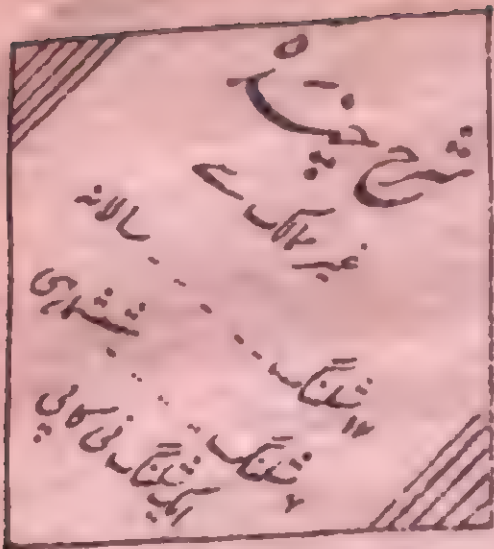 شرح چندہ
غیر ممالک سے
سالانہ ۔۔۔۔ ۱۲ شلنگ
ششماہی ۔۔۔۔ ۷ شلنگ
فی کاپی ایک شلنگ